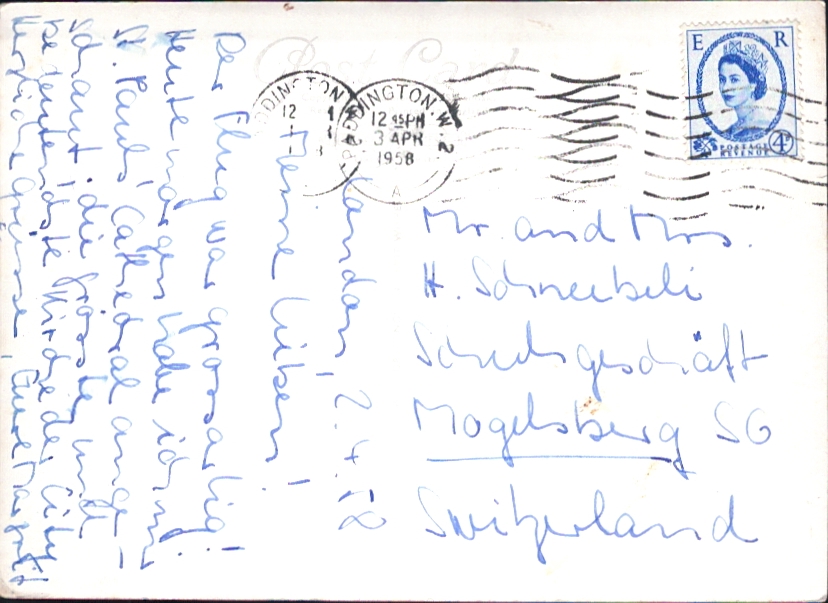 Post Card
London, 2.4.58
Meine Lieben!
Der Flug war grossartig!
Heute morgen habe ich mir
St. Pauls' Cathedral ange-
schaut, die grösste und
bedeutendste Kirche der City
Herzliche Grüsse, Eure Margrit
PADDINGTON W.2
12 45 PM
3 APR
1958
A
DDINGTON
12
E R
POSTAGE
REVENUE
4D
Mr. and Mrs.
H. Schneebeli
Schuhgeschäft
Mogelsberg SG
Switzerland